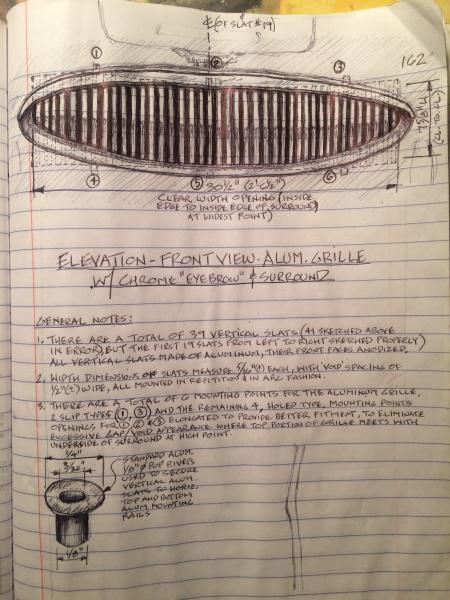 ℄ (of SLAT #19)
162
① ② ③
7 7/8" H
(CL. TO CL.)
④ ⑤ ⑥
30 1/2" (2'6 1/2")
CLEAR WIDTH OPENING (INSIDE
EDGE TO INSIDE EDGE OF SURROUND)
AT WIDEST POINT)
ELEVATION-FRONT VIEW-ALUM. GRILLE
W/ CHROME "EYEBROW" & SURROUND
GENERAL NOTES:
1. THERE ARE A TOTAL OF 39 VERTICAL SLATS (41 SKETCHED ABOVE
IN ERROR), BUT THE FIRST 19 SLATS FROM LEFT TO RIGHT SKETCHED PROPERLY)
ALL VERTICAL SLATS MADE OF ALUMINUM, THEIR FRONT FACES ANODIZED.
2. WIDTH DIMENSIONS OF SLATS MEASURE 5/16"(±) EACH, WITH VOID SPACING OF
1/2"(±) WIDE, ALL MOUNTED IN REPITITION & IN ARC FASHION.
3. THERE ARE A TOTAL OF 6 MOUNTING POINTS FOR THE ALUMINUM GRILLE,
2 SLIP TYPES (①, ③) AND THE REMAINING 4, HOLED TYPE, MOUNTING POINTS
OPENINGS FOR ①, ② & ③ ELONGATED TO PROVIDE BETTER FITMENT, TO ELIMINATE
EXCESSIVE GAP/VOID APPEARANCE WHERE TOP PORTION OF GRILLE MEETS WITH
UNDERSIDE OF SURROUND AT HIGH POINT.
1/4"
3/32"
STANDARD ALUM.
1/8" Ø POP RIVETS
USED TO SECURE
VERTICAL ALUM.
SLATS TO HORIZ.
TOP AND BOTTOM
ALUM MOUNTING
RAILS
1/8"